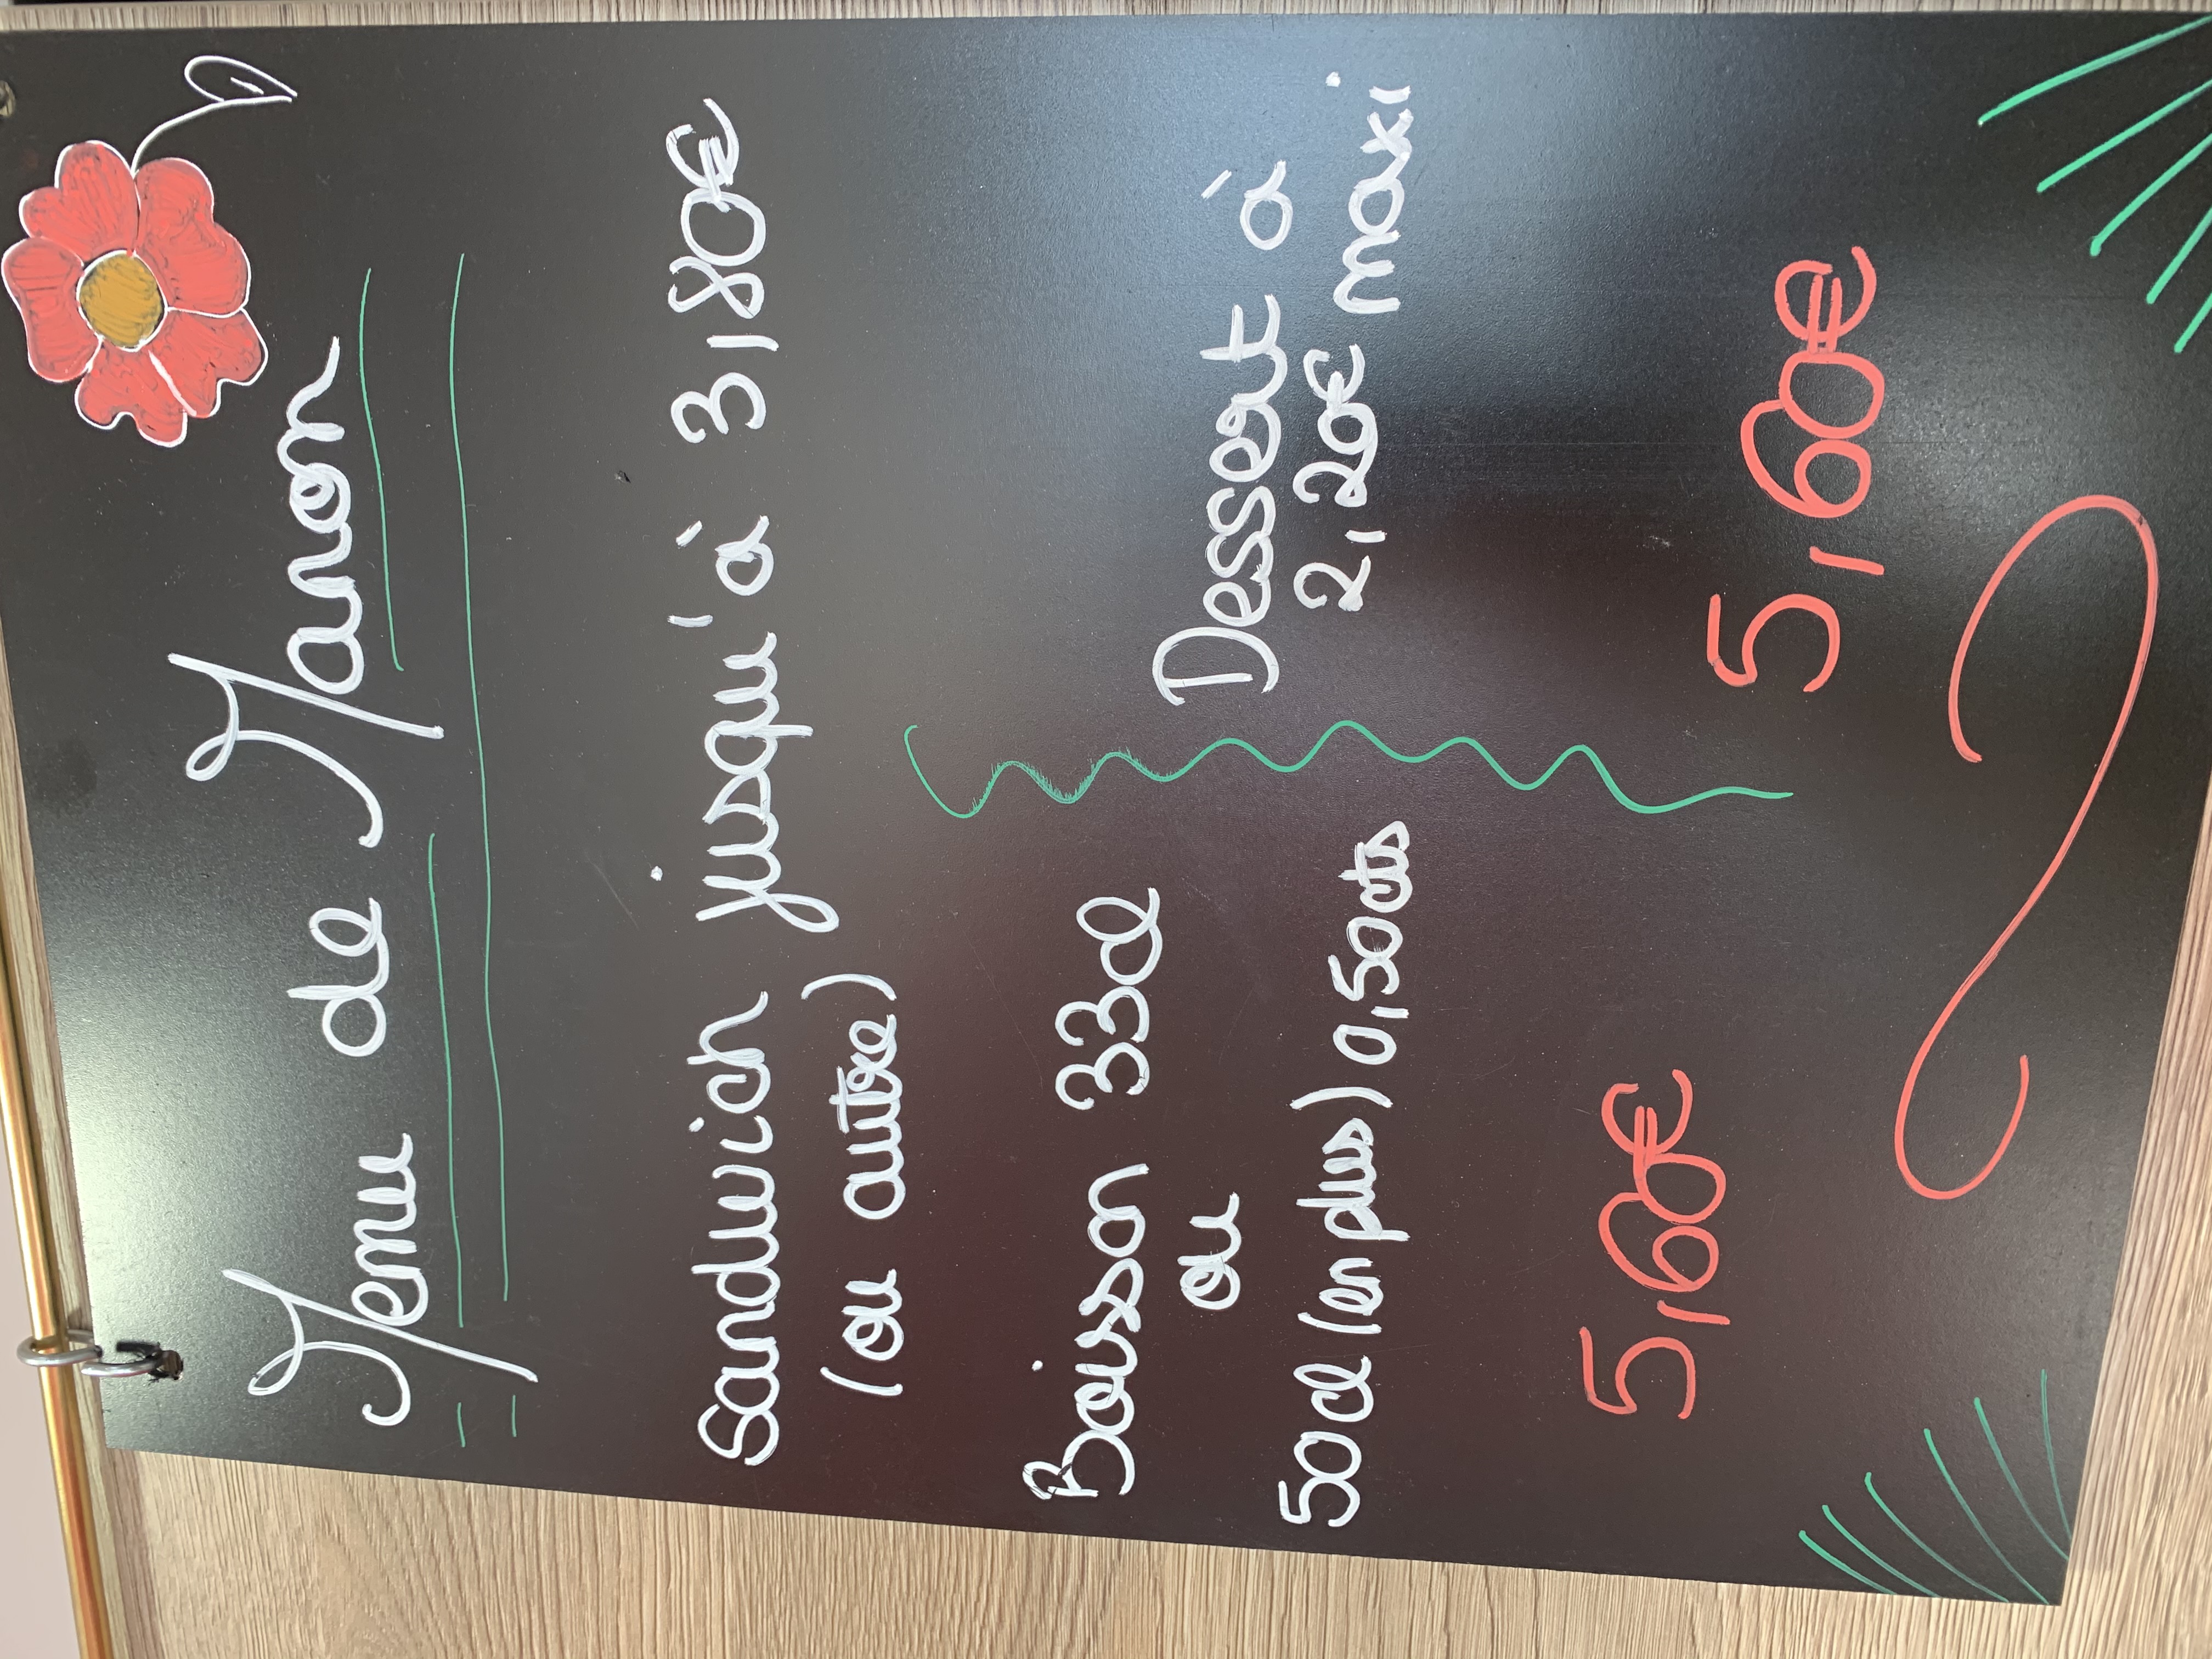 Menu de Manon
Sandwich jusqu'à 3,80€
(ou autre)
Boisson 33cl
ou
50cl (en plus) 0,50cts
5,60€
Dessert à
2,20€ maxi
5,60€